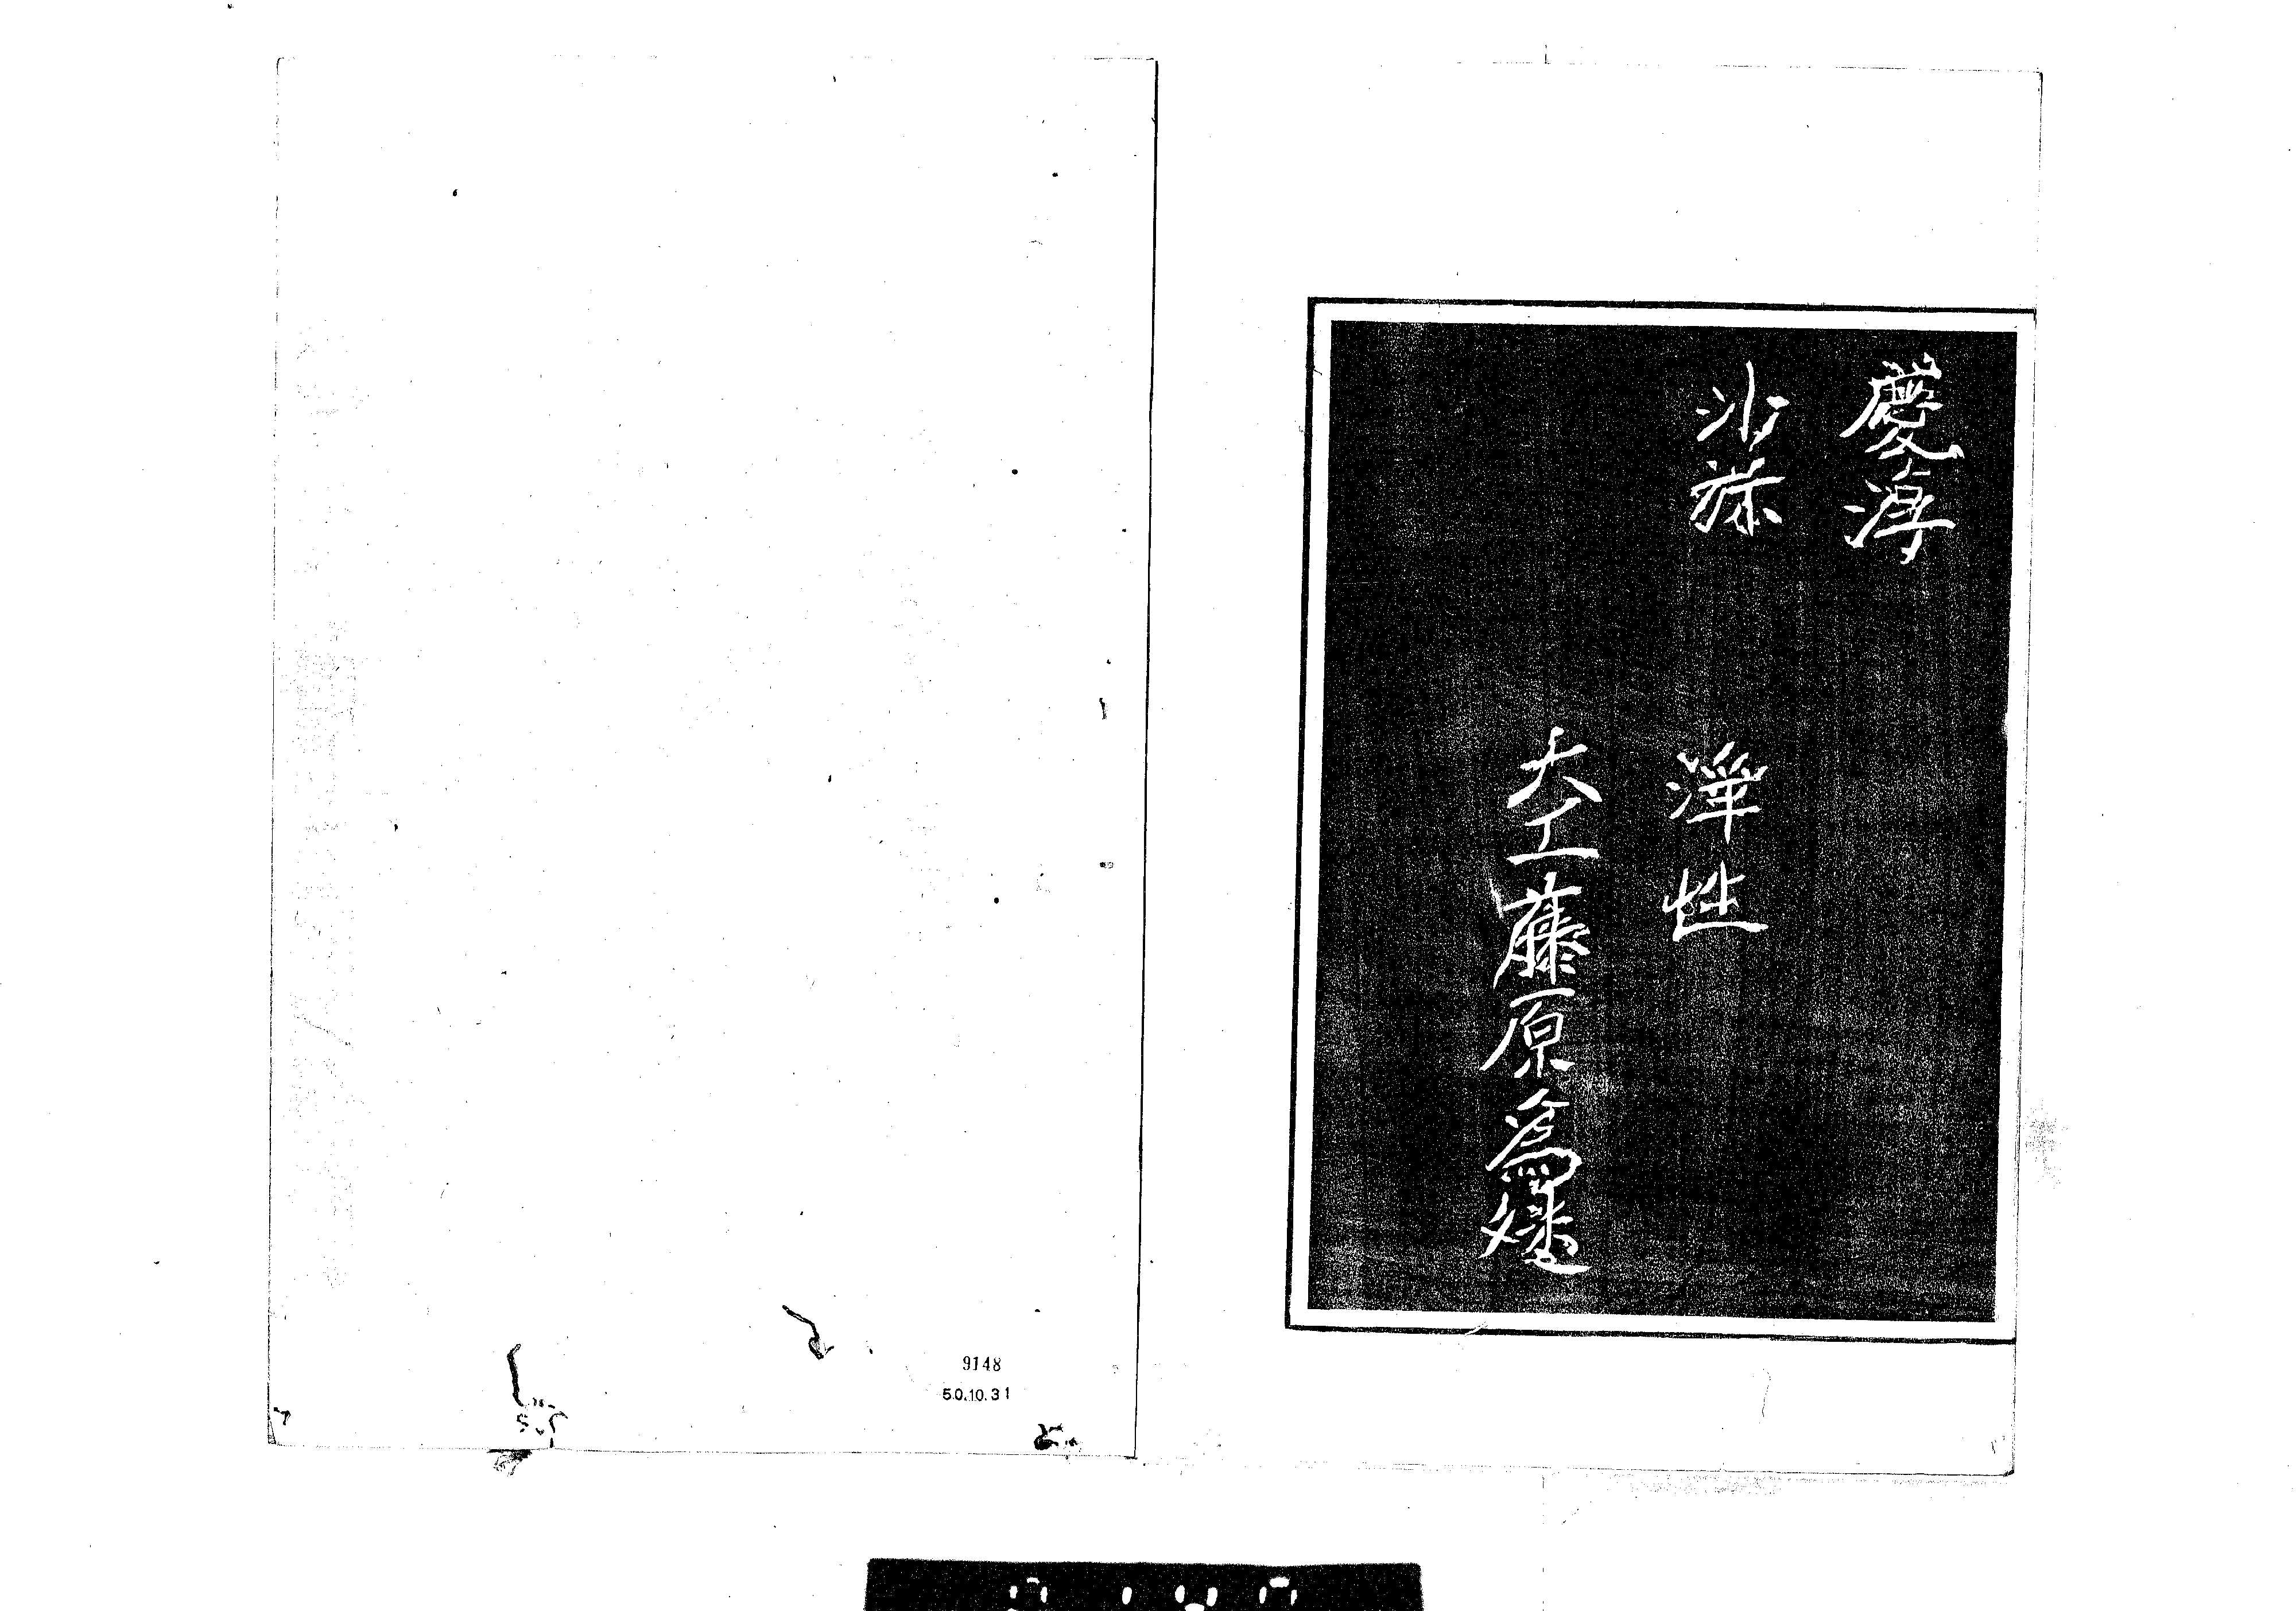 慶淳
沙弥
淨性
大工藤原為
9148
50.10.31